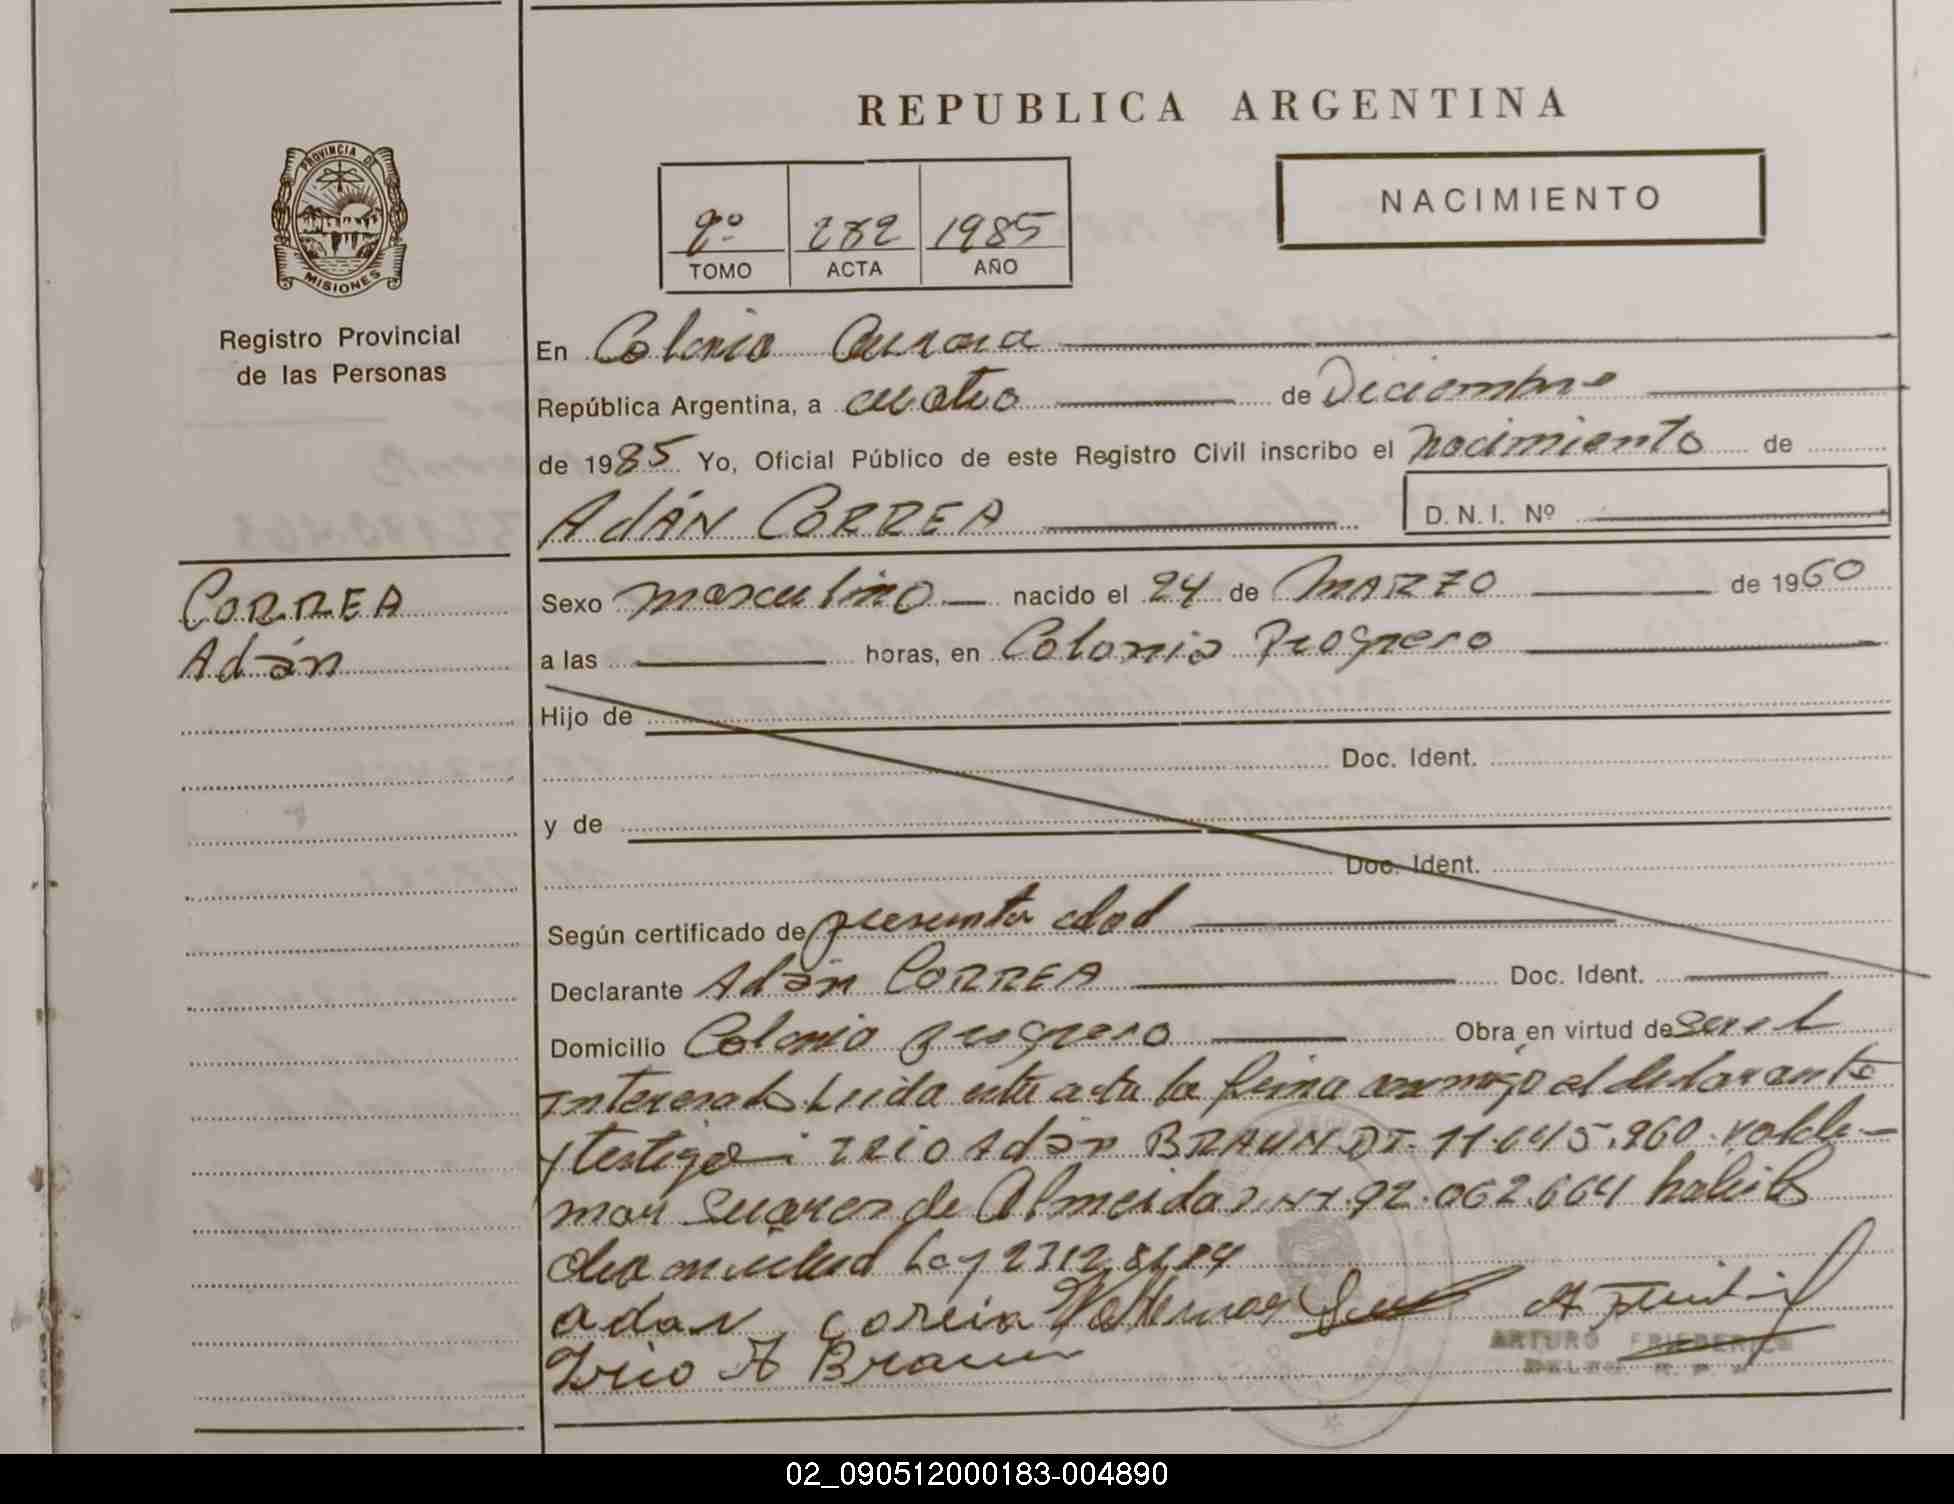 REPUBLICA ARGENTINA
PROVINCIA DE
MISIONES
Registro Provincial
de las Personas
2º 282 1985
TOMO ACTA AÑO
NACIMIENTO
En Colonia Aurora
República Argentina, a cuatro de Diciembre
de 1985 Yo, Oficial Público de este Registro Civil inscribo el nacimiento de
Adán CORREA D. N. I. Nº
CORREA
Adán
Sexo masculino nacido el 24 de MARZO de 1960
a las horas, en Colonia Progreso
Hijo de
Doc. Ident.
y de
Doc. Ident.
Según certificado de presunta edad
Declarante Adán CORREA Doc. Ident.
Domicilio Colonia progreso Obra en virtud de ser el
Interesado Leida esta acta la firma conmigo el declarante
y testigo Irio Adán BRAUN 960 Valde-
mar Suares de Almeida 92.062.664 habil
en virtud Ley
adan correia Valdemar
Irio A Braun
ARTURO FRIEDERICH